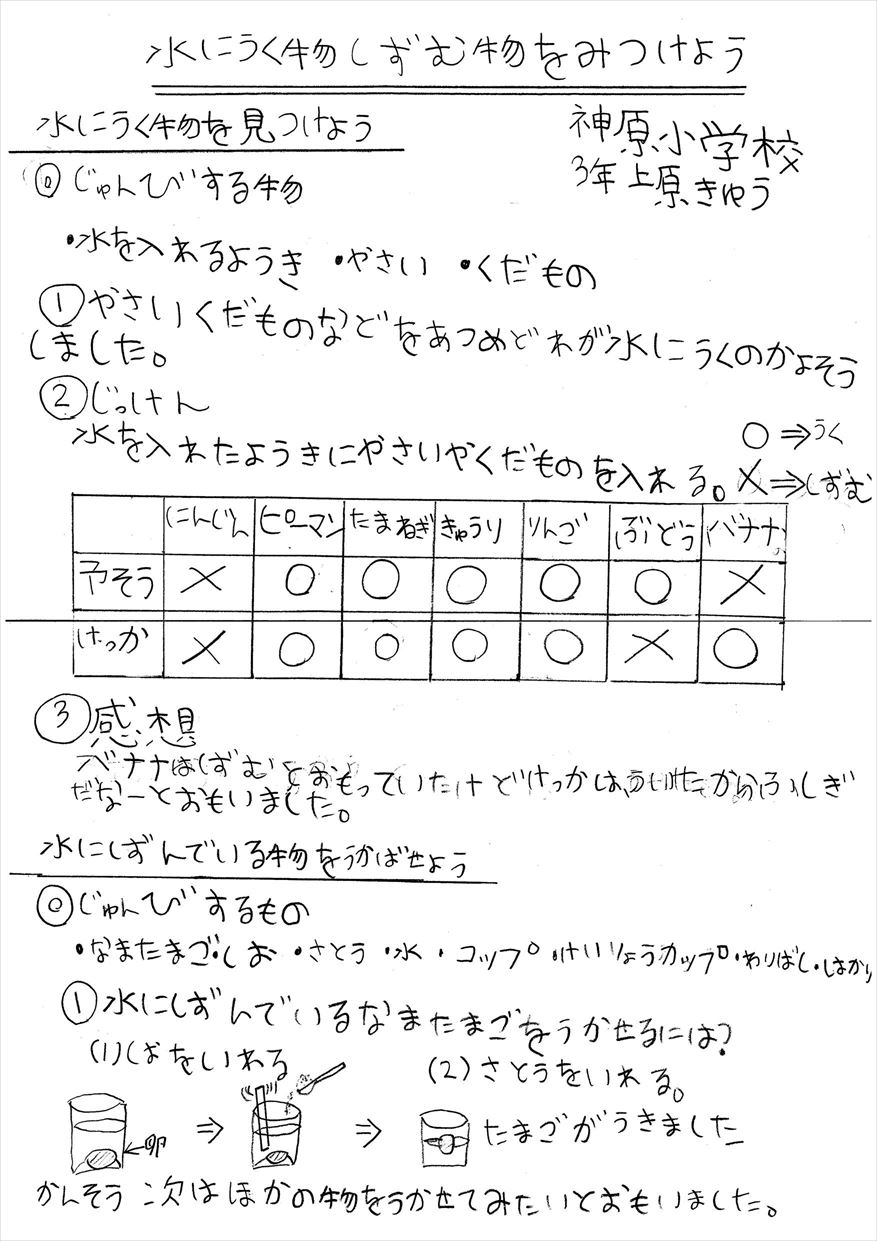 水にうく物しずむ物をみつけよう
水にうく物を見つけよう
神原小学校
3年 上原きゅう
⓪じゅんびする物
・水を入れるようき ・やさい ・くだもの
①やさいくだものなどをあつめどれが水にうくのかよそう
しました。
②じっけん
水を入れたようきにやさいやくだものを入れる。
○⇒うく
×⇒しずむ
にんじん ピーマン たまねぎ きゅうり りんご ぶどう バナナ
予そう × ○ ○ ○ ○ ○ ×
けっか × ○ ○ ○ ○ × ○
③感想
バナナはしずむとおもっていたけどけっかは、ういたからふしぎ
だなーとおもいました。
水にしずんでいる物をうかばせよう
⓪じゅんびするもの
・なまたまご・しお ・さとう ・水 ・コップ ・けいりょうカップ ・わりばし・はかり
①水にしずんでいるなまたまごをうかせるには?
(1)しおをいれる
(2)さとうをいれる。
⇒ ⇒ たまごがうきました
←卵
かんそう 次はほかの物をうかせてみたいとおもいました。